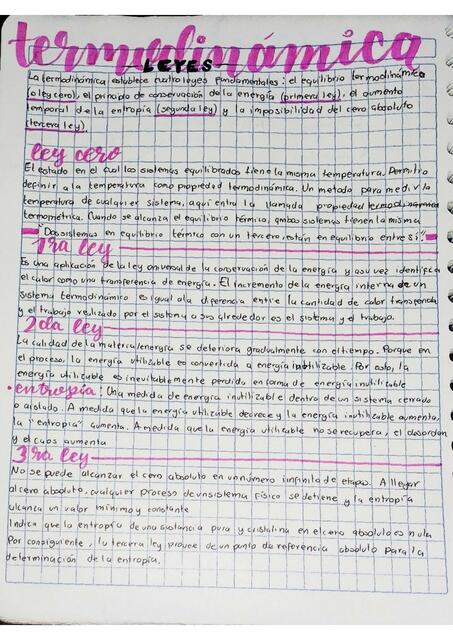 termodinámica
LEYES
La termodinámica establece cuatro leyes fundamentales: el equilibrio termodinámico
(o ley cero), el principio de conservación de la energía (primera ley), el aumento
temporal de la entropía (segunda ley) y la imposibilidad del cero absoluto
(tercera ley).
ley cero
El estado en el cual los sistemas equilibrados tiene la misma temperatura. Permitio
definir a la temperatura como propiedad termodinámica. Un metodo para medir la
temperatura de cualquier sistema, aqui entra la llamada propiedad termodinamica
termometrica. Cuando se alcanza el equilibrio térmico, ambos sistemas tienen la misma
"Dos sistemas en equilibrio térmico con un tercero, están en equilibrio entre sí"
1ra ley
Es una aplicación de la ley universal de la conservación de la energía y a su vez identifica
el calor como una transferencia de energía. El incremento de la energía interna de un
sistema termodinámico es igual a la diferencia entre la cantidad de calor transferida
y el trabajo realizado por el sistema a sus alrededor es el sistema y el trabajo.
2da ley
La calidad de la materia/energía se deteriora gradualmente con el tiempo. Porque en
el proceso, la energía utilizable es convertida a energía inutilizable. Por eso, la
energía utilizable es inevitablemente perdida en forma de energía inutilizable
• entropía: Una medida de energía inutilizable dentro de un sistema cerrado
o aislado. A medida que la energía utilizable decrece y la energía inutilizable aumenta,
la "entropia" aumenta. A medida que la energía utilizable no se recupera, el desorden
y el caos aumenta
3ra ley
No se puede alcanzar el cero absoluto en un número infinito de etapas. A llegar
al cero absoluto, cualquier proceso de un sistema físico se detiene y la entropía
alcanza un valor mínimo y constante
Indica que la entropía de una sustancia pura y cristalina en el cero absoluto es nula
Por consiguiente, la tercera ley provee de un punto de referencia absoluto para la
determinación de la entropía.